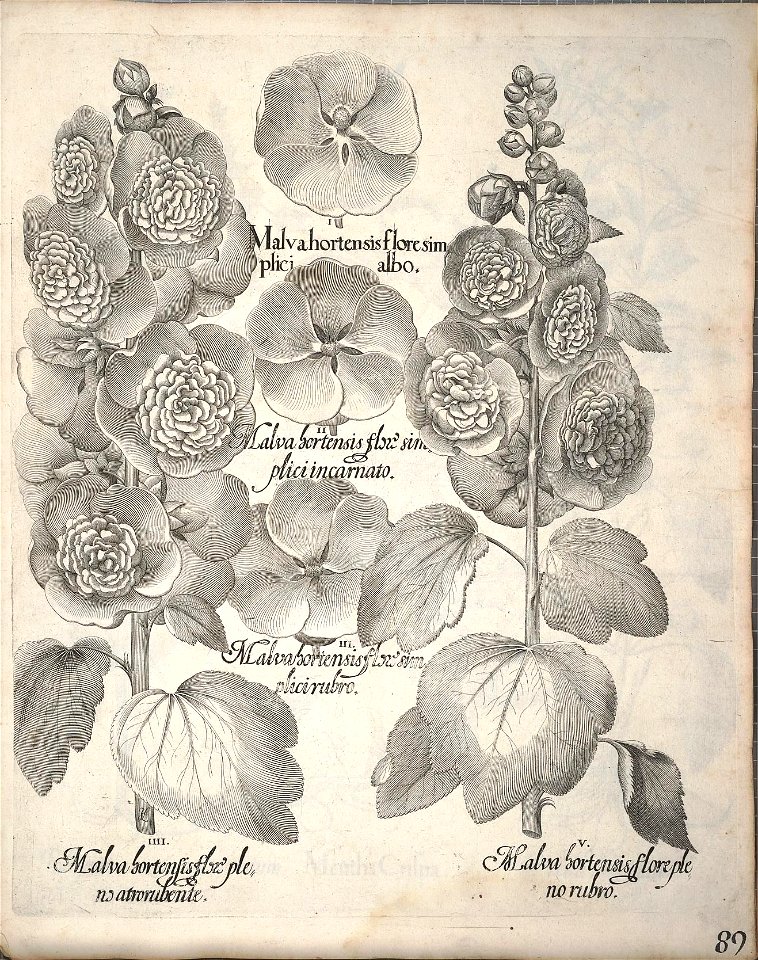 I
Malva hortensis flore sim
plici albo.
II
Malva hortensis flore sim,
plici incarnato.
III.
Malva hortensis flore sim,
plici rubro.
IIII.
Malva hortensis flore ple,
no atrorubente.
V.
Malva hortensis flore ple
no rubro.
89